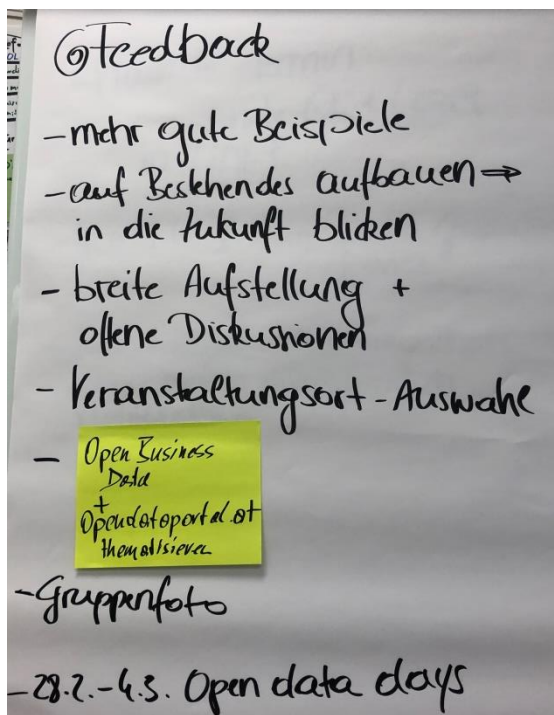 ⑥ Feedback
- mehr gute Beispiele
- auf Bestehendes aufbauen ⇒
in die Zukunft blicken
- breite Aufstellung +
offene Diskussionen
- Veranstaltungsort - Auswahl
-
Open Business
Data
+
Opendataportal.at
thematisieren
- Gruppenfoto
- 28.2.-4.3. Open data days